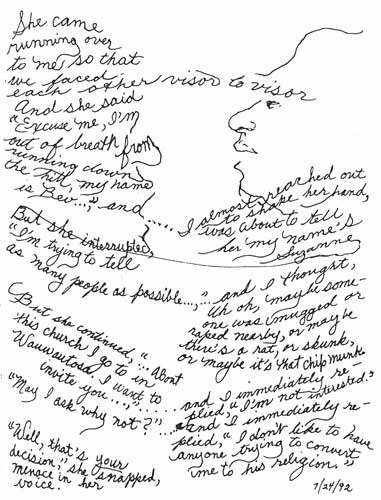 She came
running over
to me so that
we faced
each other visor to visor
And she said
"Excuse me, I'm
out of breath from
running down
the hill, my name
is Bev...," and .....
I almost reached out
to shake her hand,
I was about to tell
her my name's
Suzanne
But she interrupted,
"I'm trying to tell
as many people as possible...,"
and I thought,
Uh oh, maybe some-
one was mugged or
raped nearby, or maybe
there's a rat, or skunk,
or maybe it's that chipmunk
But she continued, "...about
this church I go to in
Wauwautosa, I want to
invite you....,"......
and I immediately re-
plied, "I'm not interested."
"May I ask why not?"....
and I immediately re-
plied, "I don't like to have
anyone trying to convert
me to his religion."
"Well, that's your
decision," she snapped,
menace in her
voice.
7/24/92